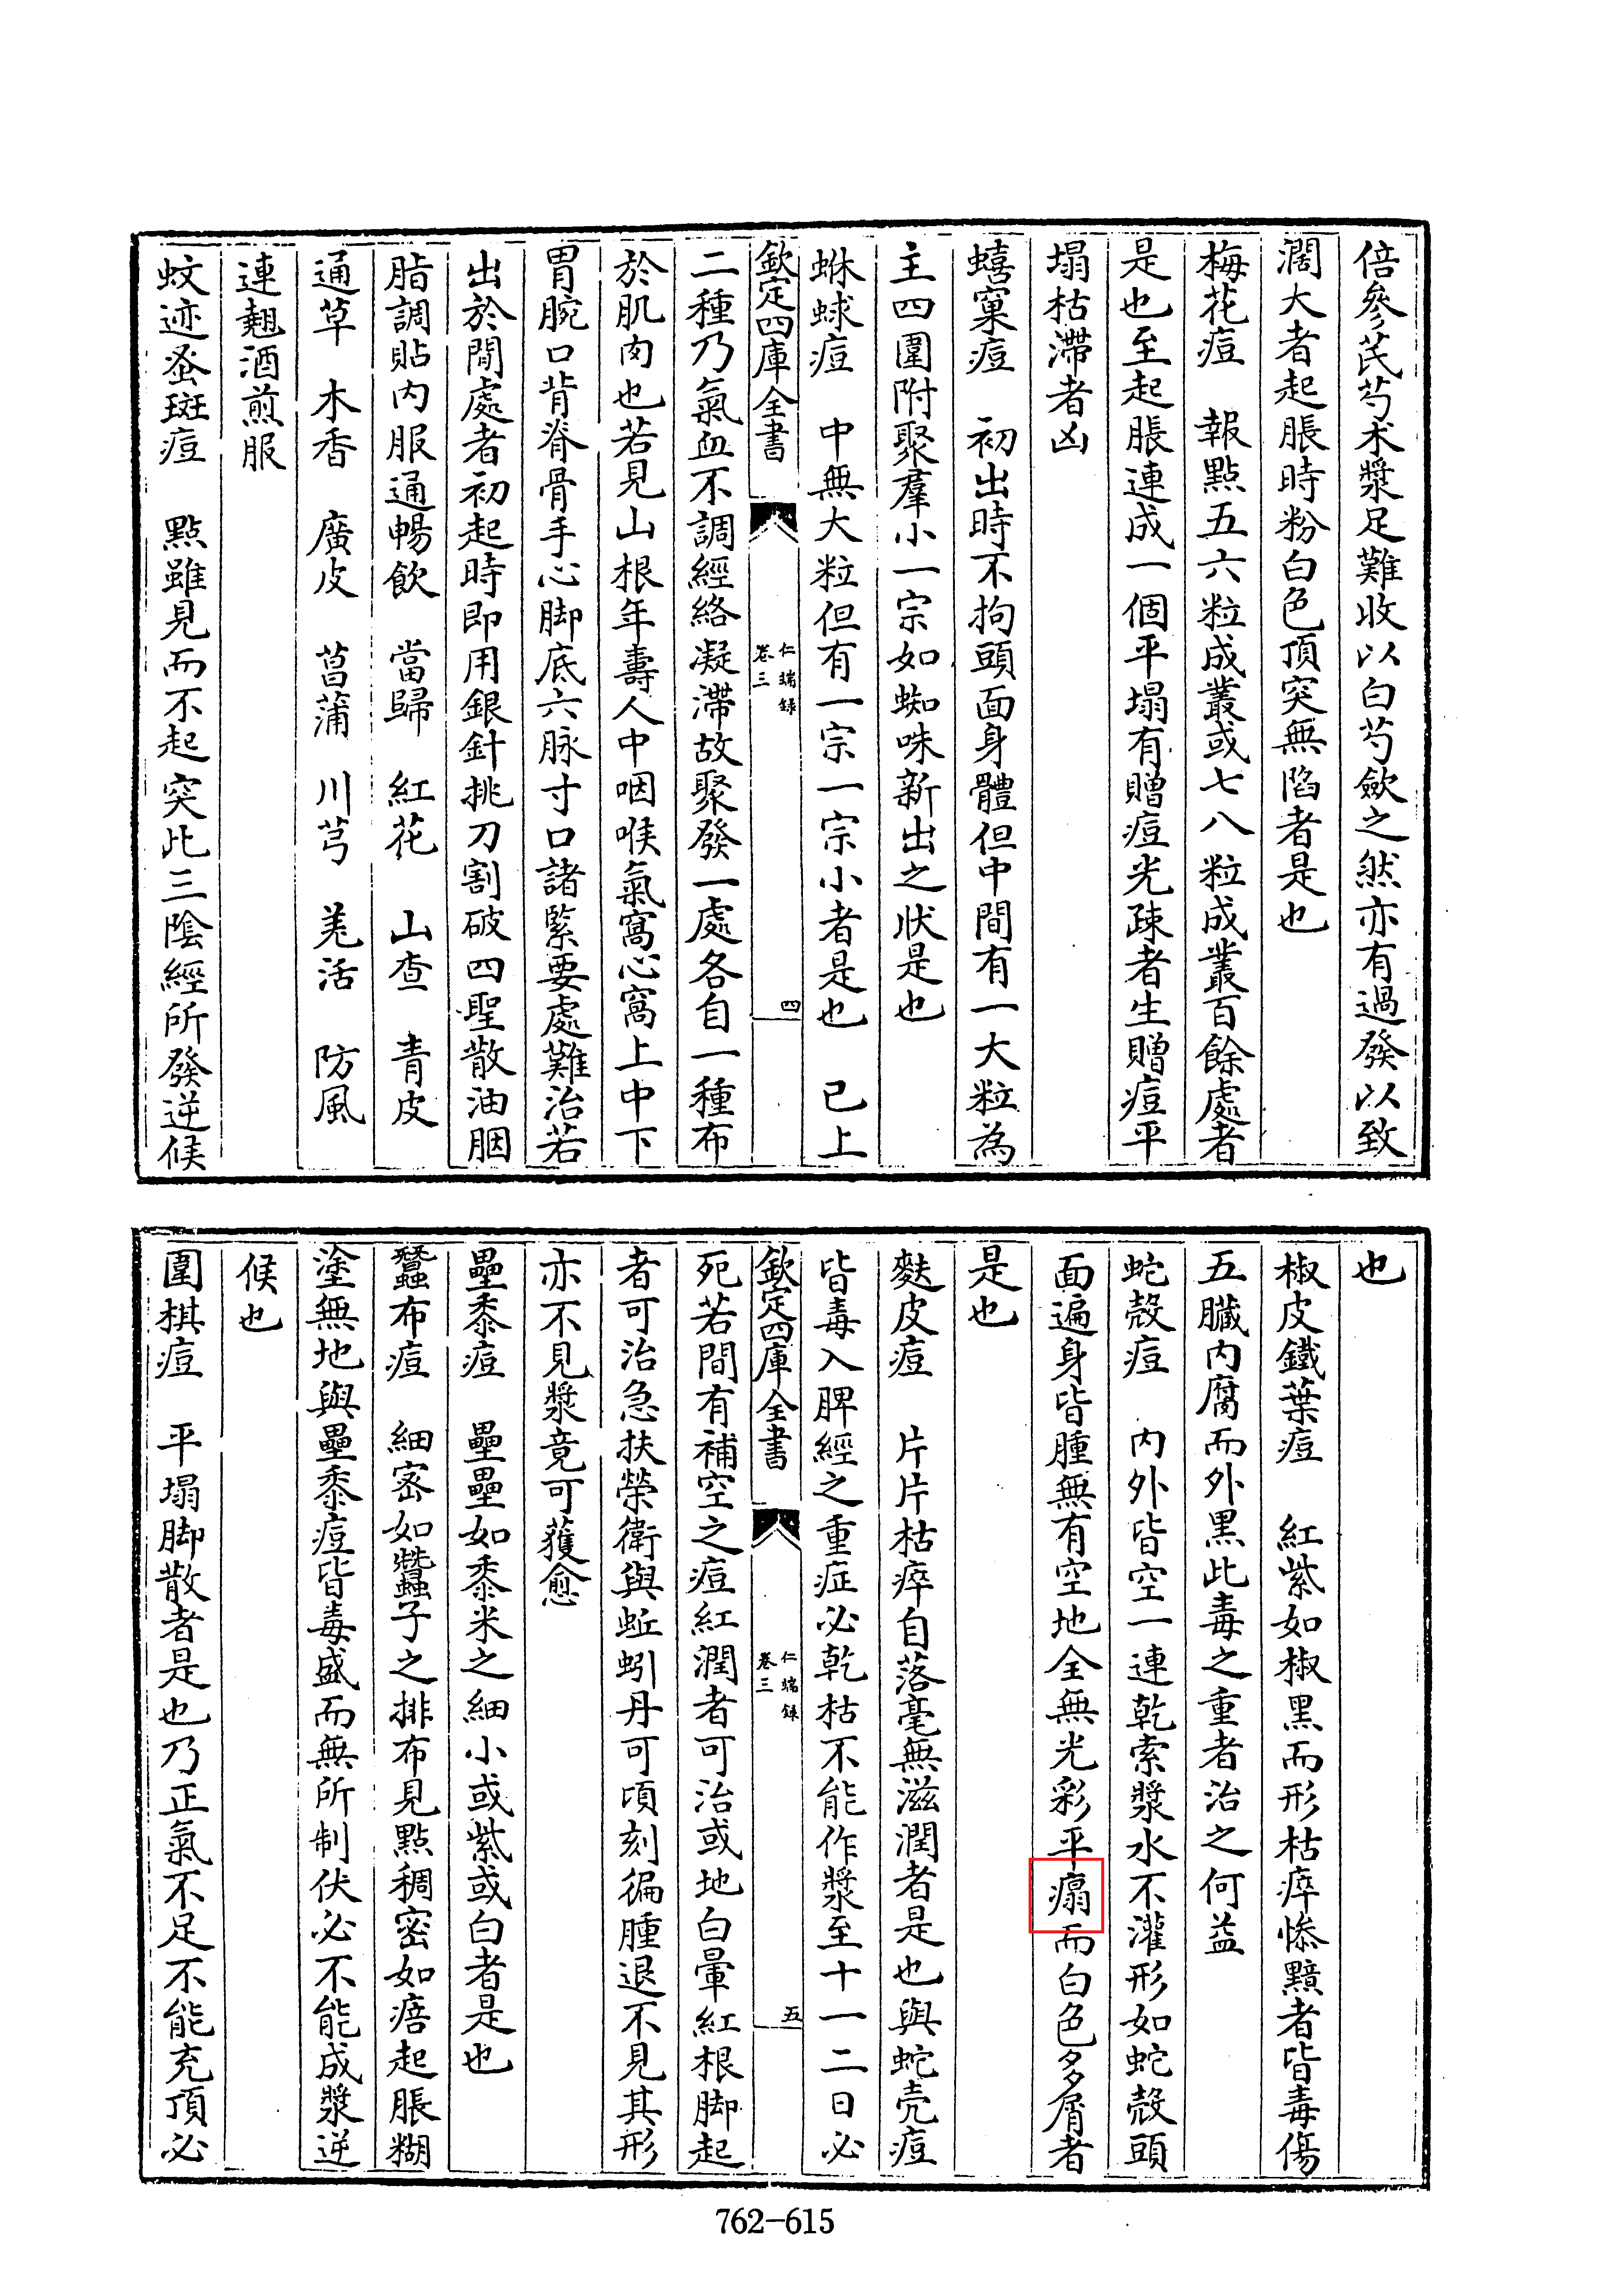 倍參芪芍术漿足難收以白芍斂之然亦有過發以致
濶大者起脹時粉白色頂突無陷者是也
梅花痘　報點五六粒成叢或七八粒成叢百餘處者
是也至起脹連成一個平塌有贈痘光疎者生贈痘平
塌枯滯者凶
蟢窠痘　初出時不拘頭面身體但中間有一大粒為
主四圍附聚羣小一宗如蜘蛛新出之狀是也
蛛蛷痘　中無大粒但有一宗一宗小者是也　已上
欽定四庫全書　仁端錄卷三　四
二種乃氣血不調經絡凝滯故聚發一處各自一種布
於肌肉也若見山根年壽人中咽喉氣窩心窩上中下
胃腕口背脊骨手心脚底六脉寸口諸緊要處難治若
出於閒處者初起時即用銀針挑刀割破四聖散油胭
脂調貼内服通暢飲　當歸　紅花　山查　青皮
通草　木香　廣皮　菖蒲　川芎　羗活　防風
連翹酒煎服
蚊迹蚤斑痘　點雖見而不起突此三陰經所發逆候
也
椒皮鐵葉痘　紅紫如椒黑而形枯瘁慘黯者皆毒傷
五臟内腐而外黑此毒之重者治之何益
蛇殼痘　内外皆空一連乾索漿水不灌形如蛇殼頭
面遍身皆腫無有空地全無光彩平瘺而白色多屑者
是也
麩皮痘　片片枯瘁自落毫無滋潤者是也與蛇壳痘
皆毒入脾經之重症必乾枯不能作漿至十一二日必
欽定四庫全書　仁端錄卷三　五
死若間有補空之痘紅潤者可治或地白暈紅根脚起
者可治急扶榮衛與蚯蚓丹可頃刻徧腫退不見其形
亦不見漿竟可獲愈
壘黍痘　壘壘如黍米之細小或紫或白者是也
蠶布痘　細密如蠶子之排布見點稠密如㾦起脹糊
塗無地與壘黍痘皆毒盛而無所制伏必不能成漿逆
候也
圍棋痘　平塌脚散者是也乃正氣不足不能充頂必
762-615